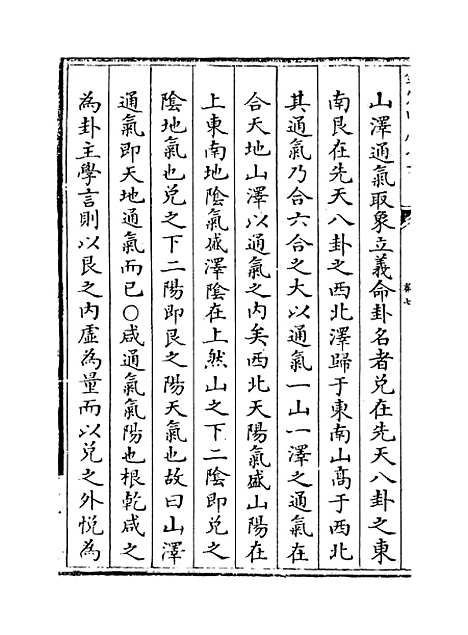 山澤通氣取象立義命卦名者兑在先天八卦之東
南艮在先天八卦之西北澤歸于東南山髙于西北
其通氣乃合六合之大以通氣一山一澤之通氣在
合天地山澤以通氣之内矣西北天陽氣盛山陽在
上東南地隂氣盛澤隂在上然山之下二隂即兑之
隂地氣也兑之下二陽即艮之陽天氣也故曰山澤
通氣即天地通氣而已○咸通氣氣陽也根乾咸之
為卦主學言則以艮之内虛為量而以兑之外悅為